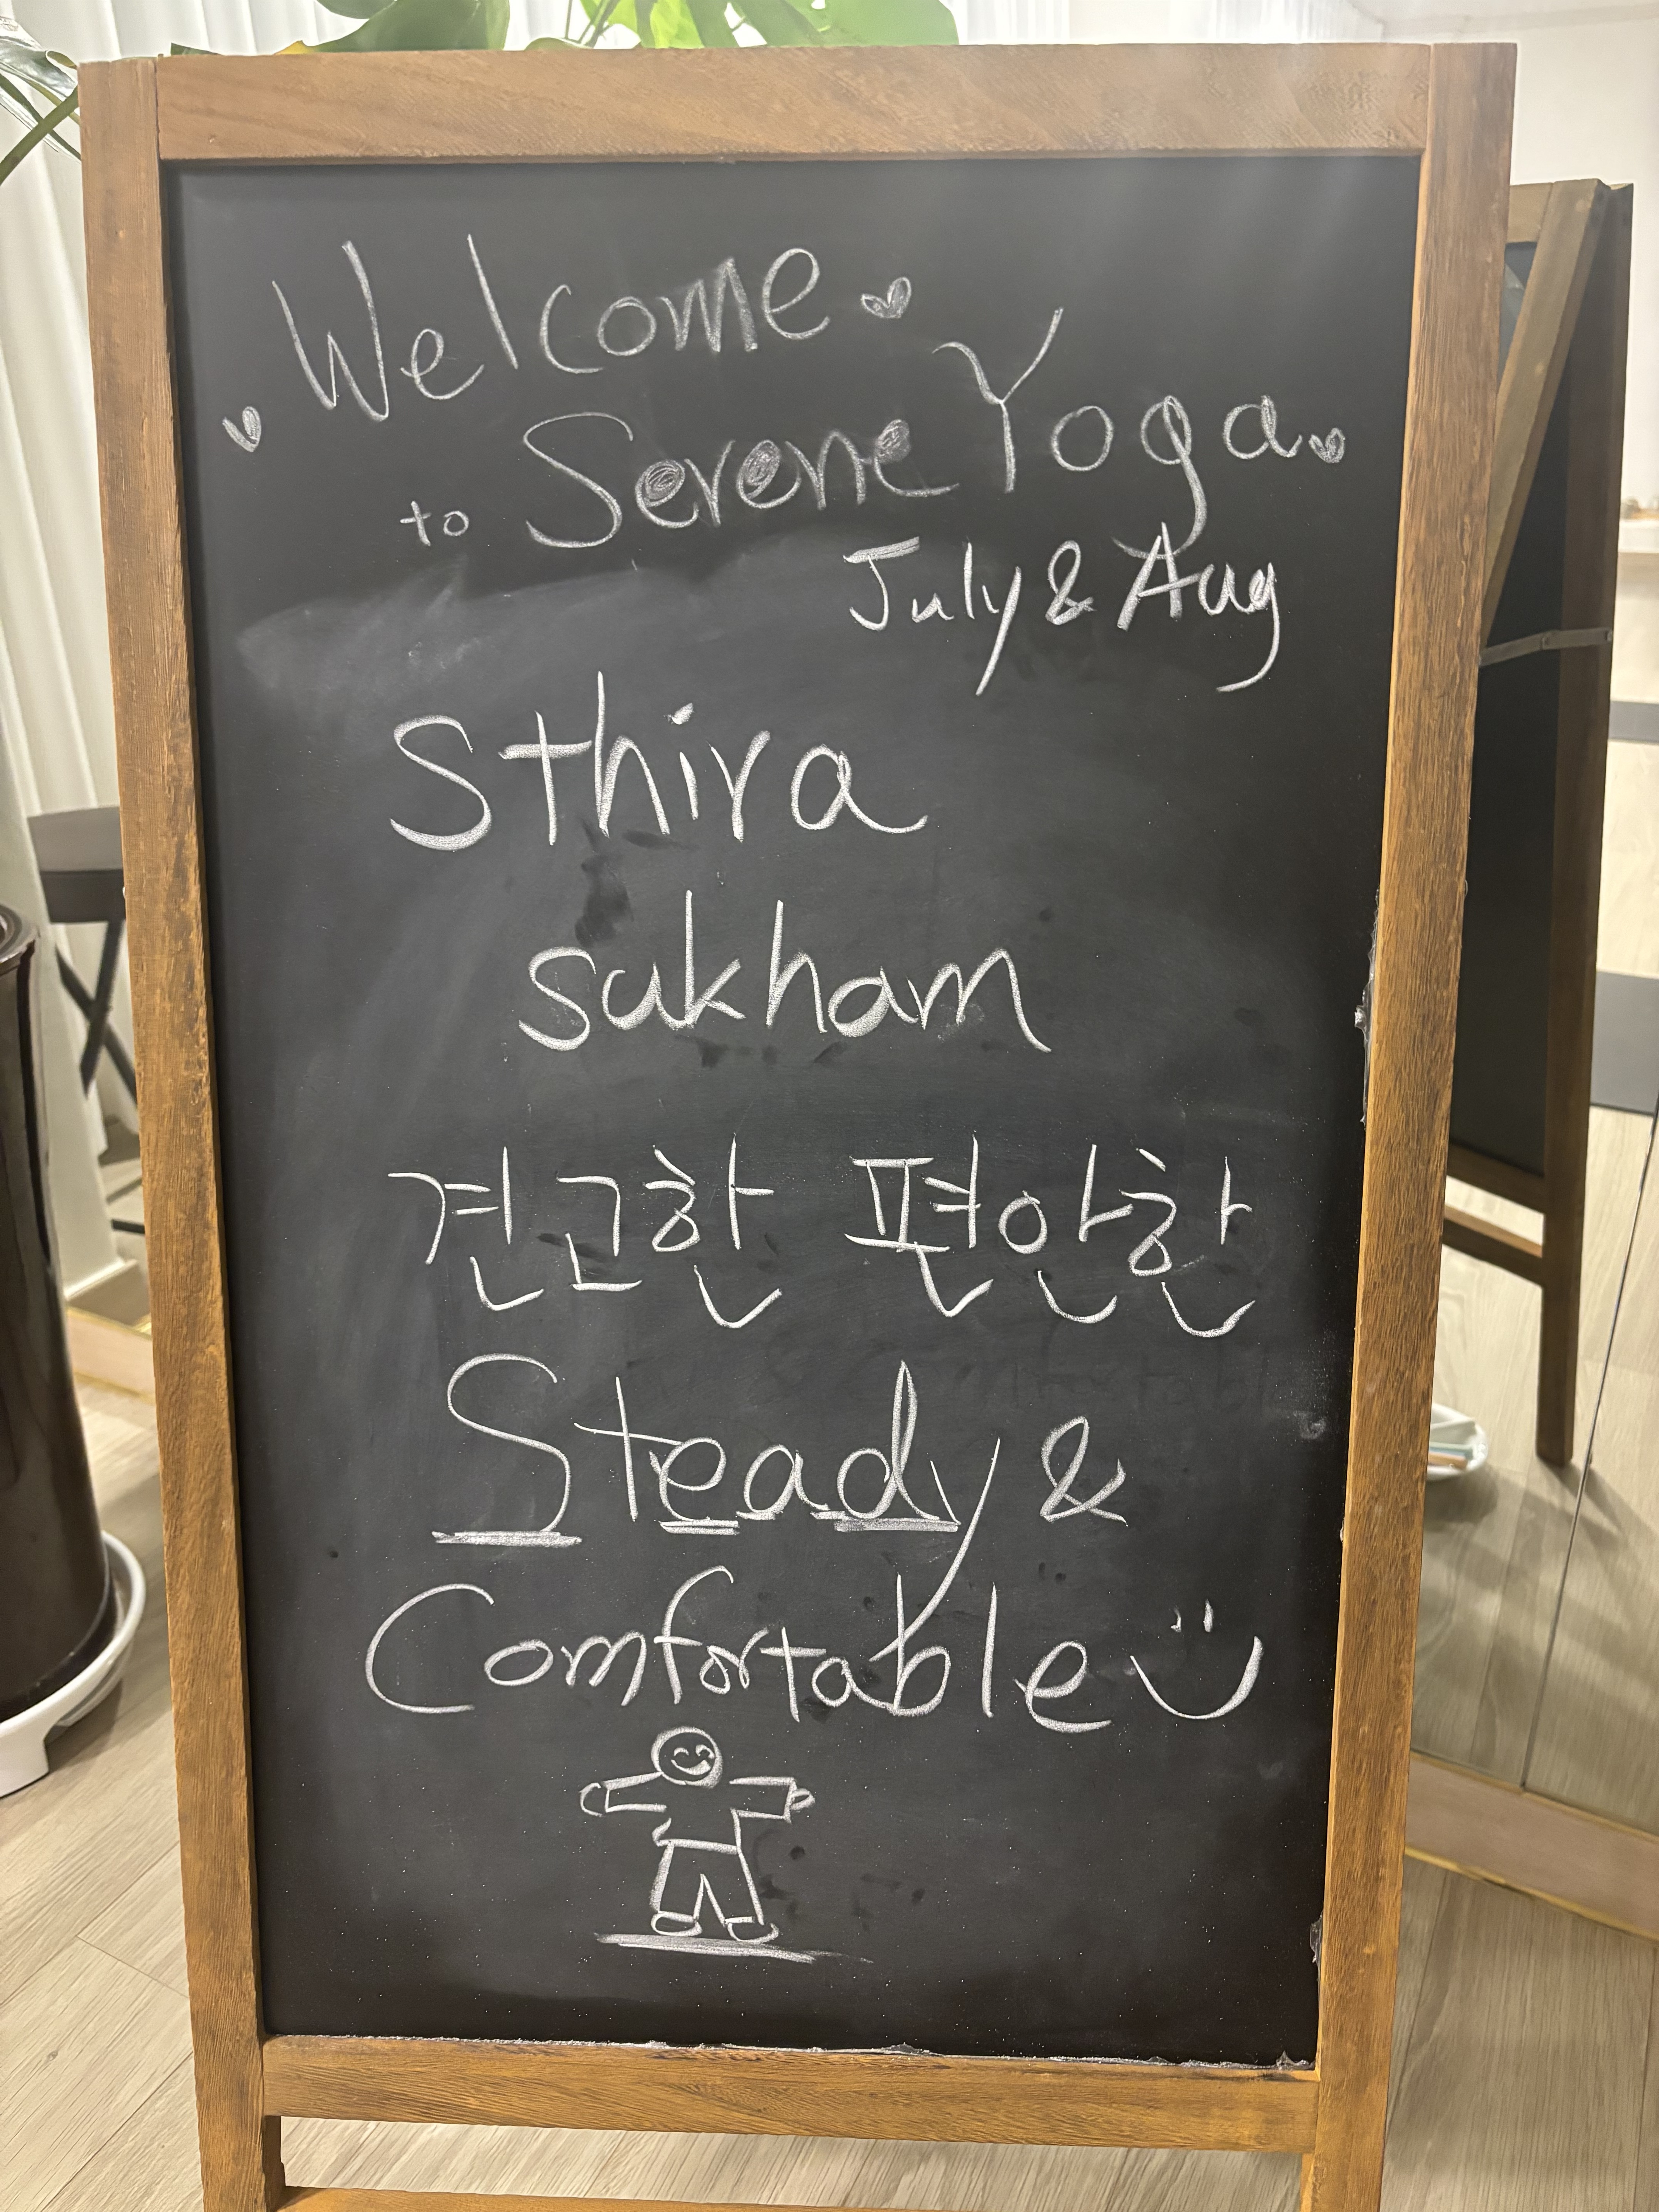 Welcome
to Serene Yoga
July & Aug
Sthira
sukham
견고한 편안한
Steady &
Comfortable